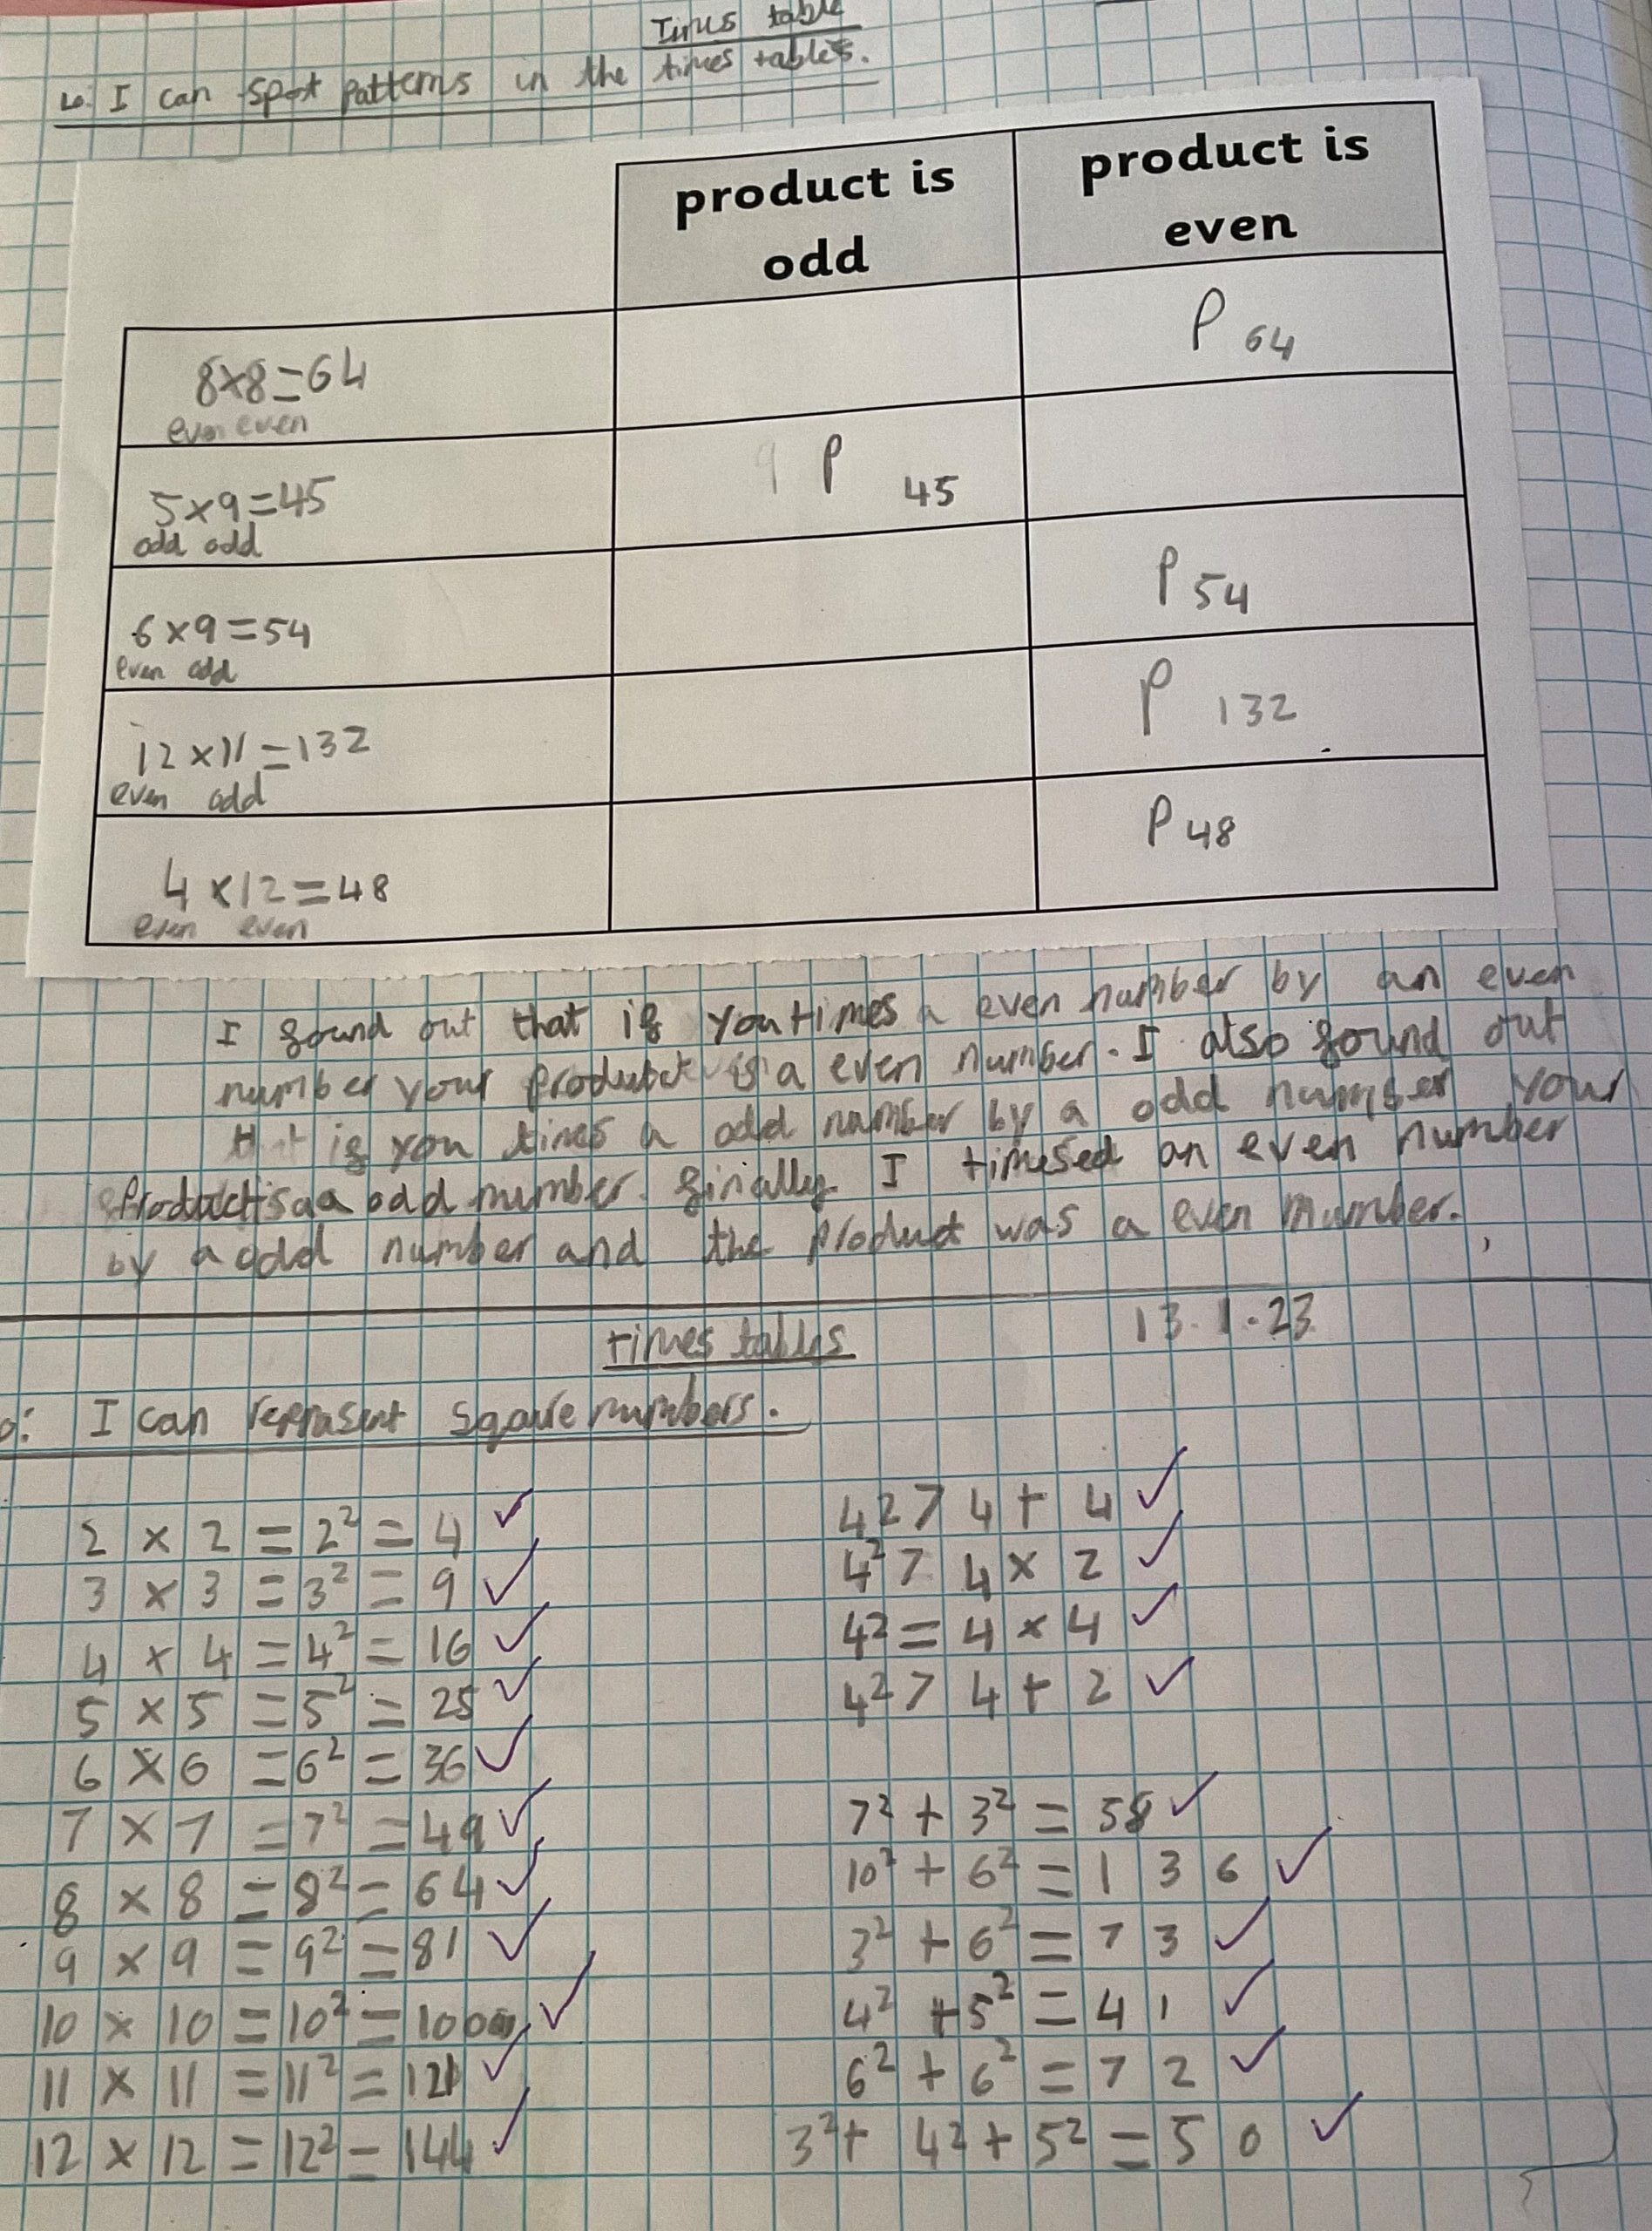 Times table
Lo: I can spot patterns in the times tables.
product is odd
product is even
8x8=64
P 64
even even
5x9=45
P 45
odd odd
6x9=54
P 54
even odd
12x11=132
P 132
even odd
4x12=48
P 48
even even
I found out that if you times a even number by an even
number your product is a even number. I also found out
that if you times a odd number by a odd number your
product is a odd number. finally I timesed an even number
by a odd number and the product was a even number.
times tables
13.1.23
o: I can represent square numbers.
2 x 2 = 2² = 4 ✓
3 x 3 = 3² = 9 ✓
4 x 4 = 4² = 16 ✓
5 x 5 = 5² = 25 ✓
6 x 6 = 6² = 36 ✓
7 x 7 = 7² = 49 ✓
8 x 8 = 8² = 64 ✓
9 x 9 = 9² = 81 ✓
10 x 10 = 10² = 100 ✓
11 x 11 = 11² = 121 ✓
12 x 12 = 12² = 144 ✓
4² > 4 + 4 ✓
4² > 4 x 2 ✓
4² = 4 x 4 ✓
4² > 4 + 2 ✓
7² + 3² = 58 ✓
10² + 6² = 136 ✓
3² + 6² = 73 ✓
4² + 5² = 41 ✓
6² + 6² = 72 ✓
3² + 4² + 5² = 50 ✓